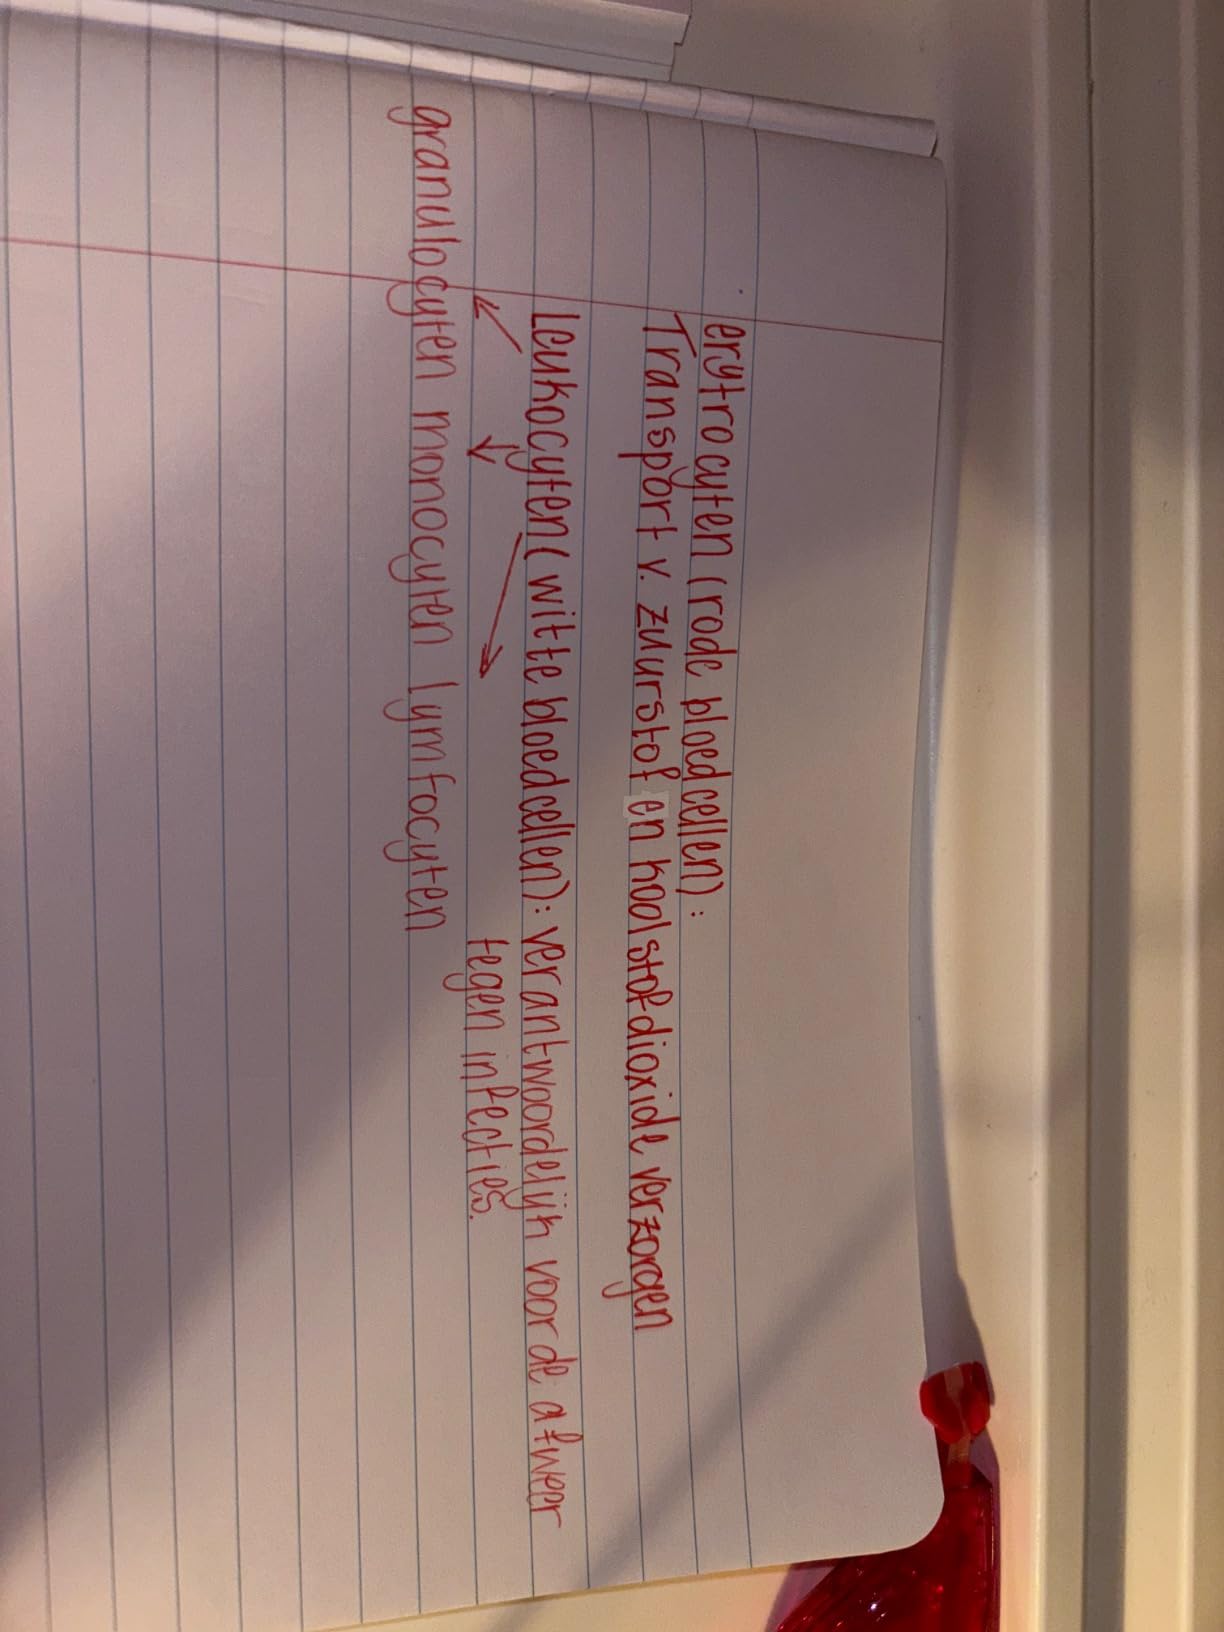 erytrocyten (rode bloedcellen):
Transport v. zuurstof en koolstofdioxide verzorgen
Leukocyten (witte bloedcellen): verantwoordelijk voor de afweer
tegen infecties.
granulocyten monocyten lymfocyten